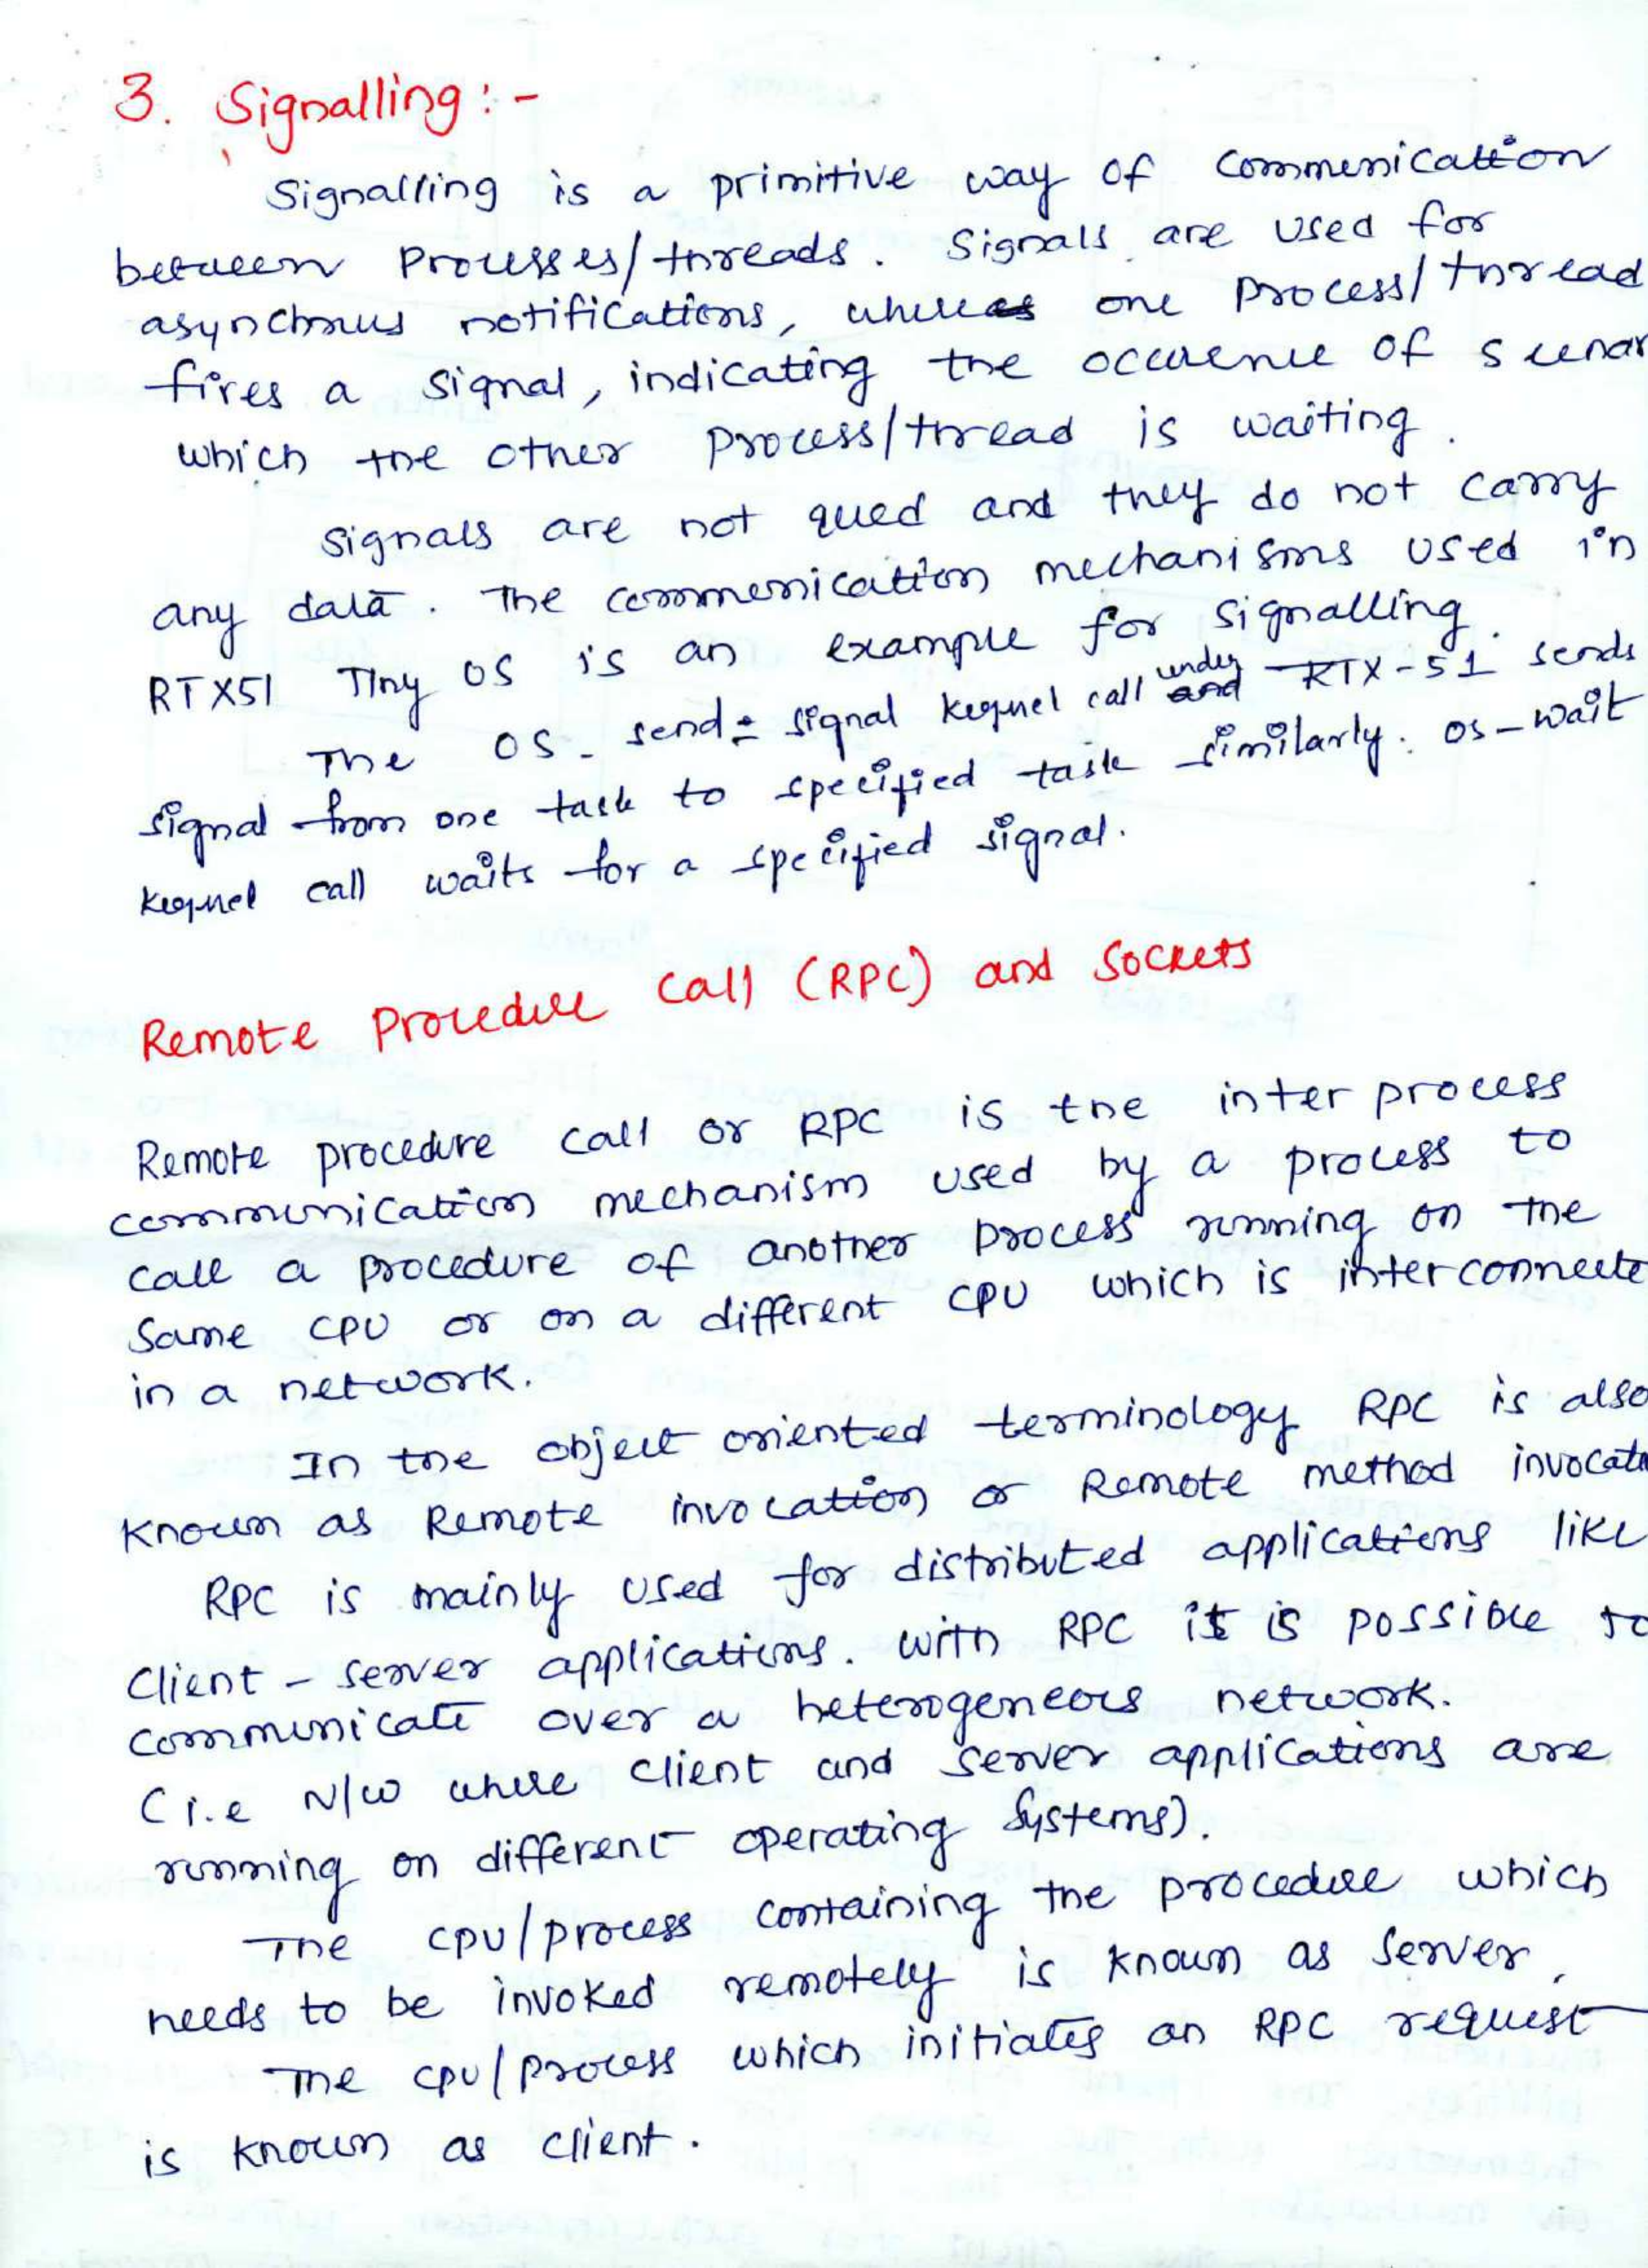 3. Signalling:-
Signalling is a primitive way of commenication
between Processes/threads. Signals are used for
asynchrous notifications, where as one process/thread
fires a signal, indicating the occurence of scenar
which the other process/thread is waiting.
Signals are not qued and they do not carry
any data. The commenication mechanisms used in
RTX51 Tiny OS is an example for signalling.
The OS_send_signal kernel call under and RTX-51 sends
signal from one task to specified task similarly. os-wait
kernel call waits for a specified signal.
Remote Procedure Call (RPC) and Sockets
Remote procedure call or RPC is the inter process
communication mechanism used by a process to
call a procedure of another process running on the
Same CPU or on a different CPU which is interconnecte
in a network.
In the object oriented terminology RPC is also
known as Remote invocation or Remote method invocati
RPC is mainly used for distributed applications like
Client-server applications. with RPC it is possible to
communicate over a heterogeneous network.
(i.e N/w where client and server applications are
running on different operating systems).
The cpu/process containing the procedure which
needs to be invoked remotely is known as server.
The cpu/process which initiates an RPC request
is known as client.